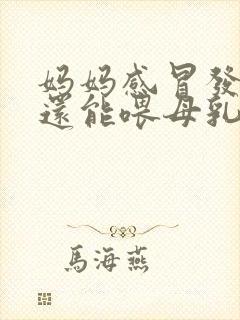 媽媽感冒發
還能喂母乳
馬海燕